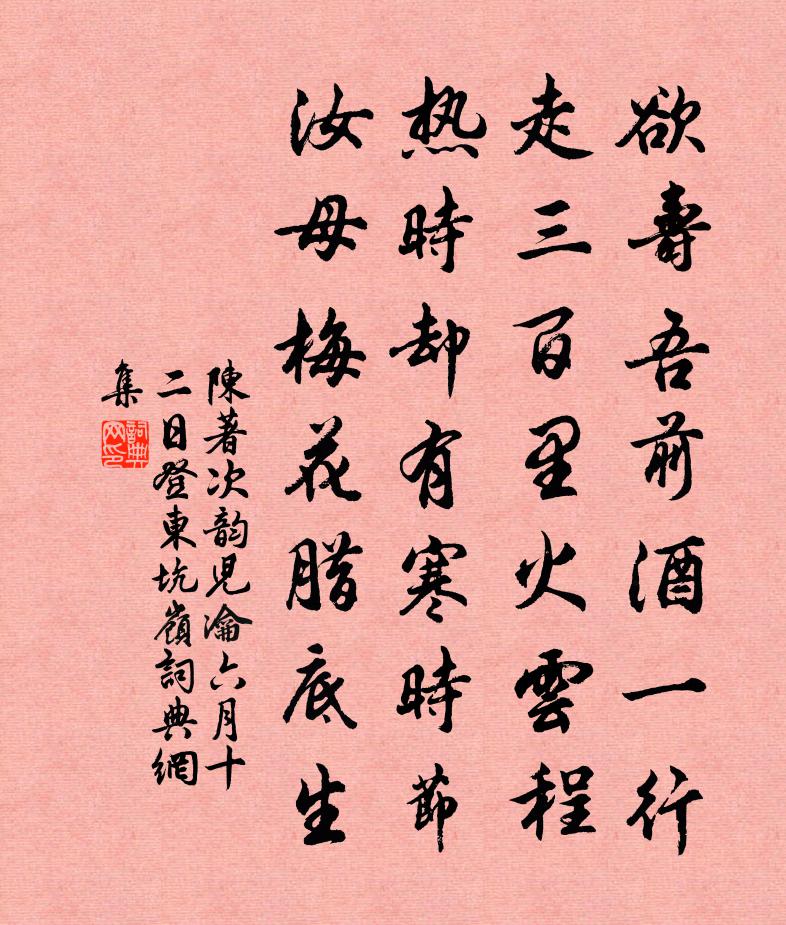 欲壽吾前酒一行
走三百里火雲程
热時却有寒時節
汝母梅花腊底生
陳著次韵児瀹六月十
二日登東坑嶺詞典網
集
詞典网印